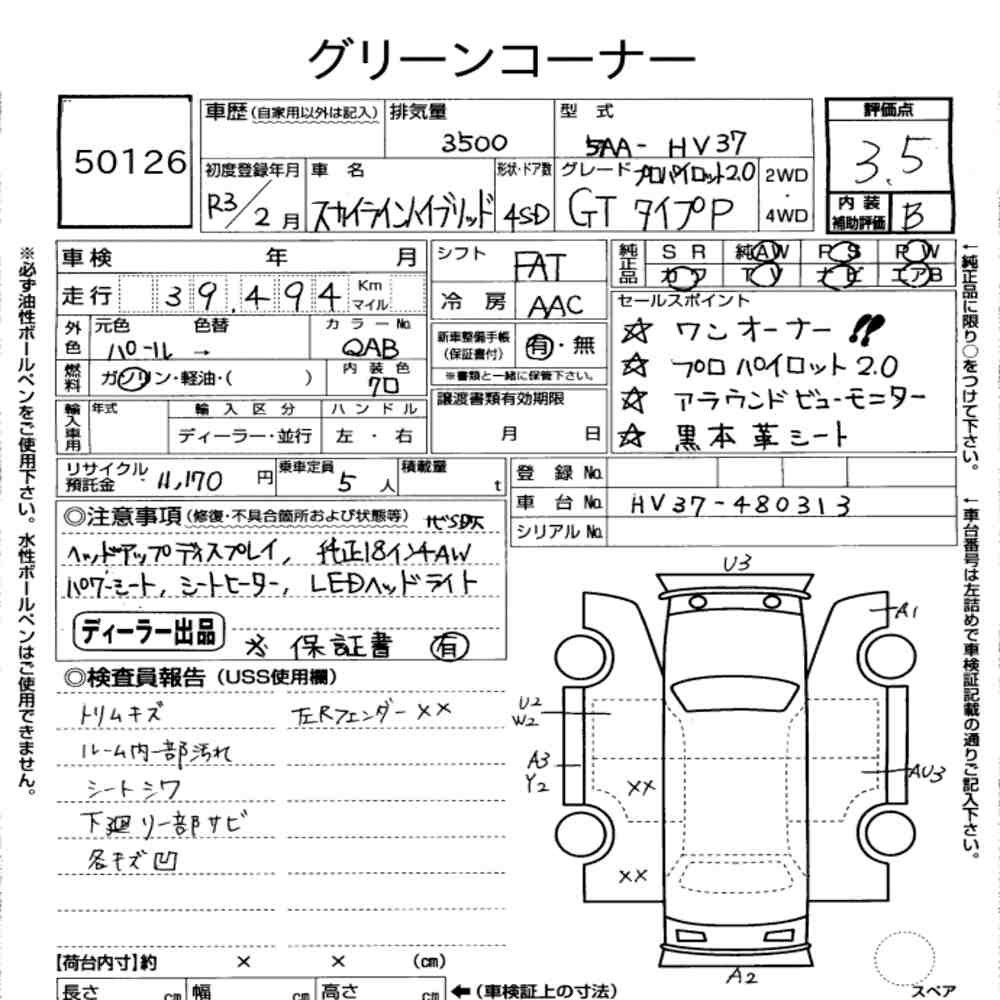 グリーンコーナー
50126
車歴(自家用以外は記入)
排気量
3500
型 式
5AA- HV37
評価点
3.5
初度登録年月
R3/2月
車 名
スカイラインハイブリッド
形状・ドア数
4SD
グレード プロパイロット2.0
GT タイプP
2WD
・
4WD
内 装
補助評価
B
車検 年 月
シフト
FAT
純正品
S R
純AW
P S
P W
カワ
T V
ナビ
エアB
走行 39,494 Km
マイル
冷 房
AAC
セールスポイント
☆ ワンオーナー!!
☆ プロパイロット2.0
☆ アラウンドビューモニター
☆ 黒本革シート
外色
元色 色替
パール →
カラーNo.
QAB
新車整備手帳
(保証書付)
有・無
※書類と一緒に保管下さい。
燃料
ガソリン・軽油・( )
内装色
クロ
譲渡書類有効期限
月 日
輸入車用
年式
輸入区分
ディーラー・並行
ハンドル
左・右
リサイクル
預託金
11,170 円
乗車定員
5 人
積載量
t
登 録 No.
車 台 No. HV37-480313
シリアル No.
◎注意事項(修復・不具合箇所および状態等)
ヘッドアップディスプレイ, 純正18インチAW
パワーシート, シートヒーター, LEDヘッドライト
ディーラー出品
※ 保証書 有
◎検査員報告(USS使用欄)
トリムキズ
左Rフェンダー××
ルーム内一部汚れ
シートシワ
下廻り一部サビ
各キズ凹
U3
A1
U2
W2
A3
Y2
××
AU3
××
A2
【荷台内寸】約 × × (cm)
長さ cm
幅 cm
高さ cm
←(車検証上の寸法)
スペア
※必ず油性ボールペンをご使用下さい。水性ボールペンはご使用できません。
←純正品に限り○をつけて下さい。
←車台番号は左詰めで車検証記載の通りご記入下さい。